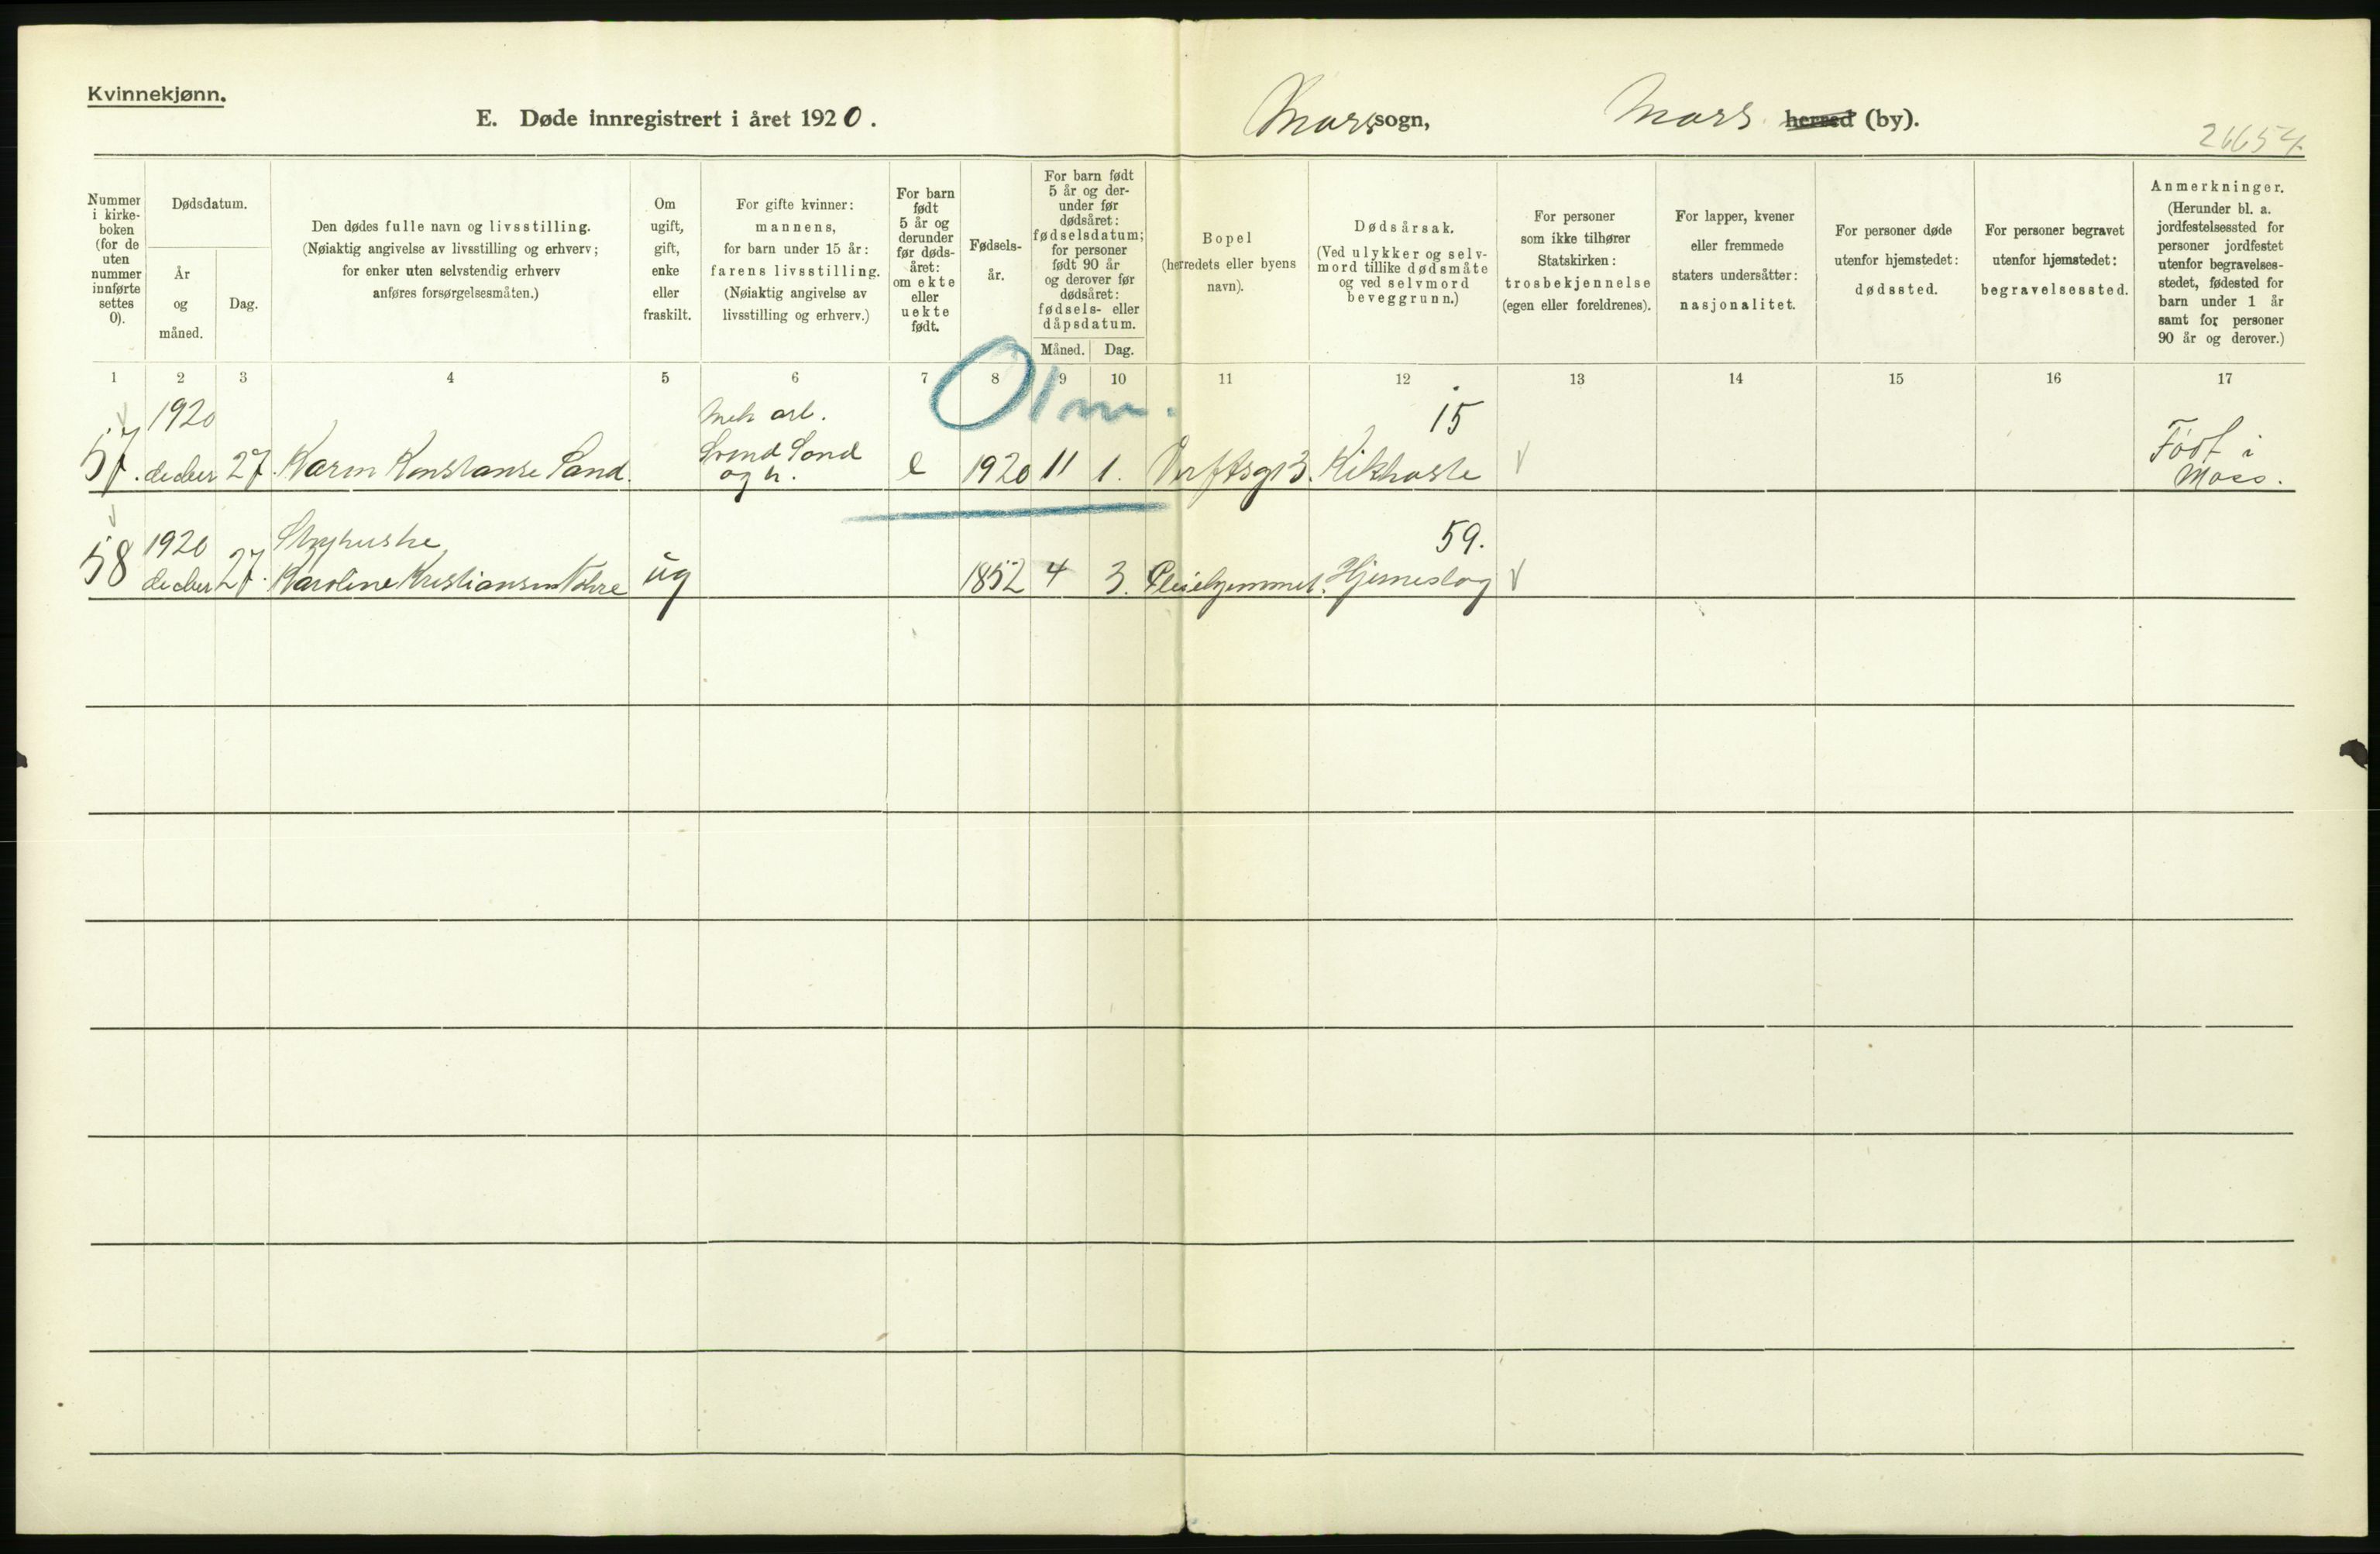 Kvinnekjønn.
E. Døde innregistrert i året 1920.
Moss sogn,
Moss herred (by).
26654.
Nummer
i kirke-
boken
(for de
uten
nummer
innførte
settes
0).
Dødsdatum.
År
og
måned.
Dag.
Den dødes fulle navn og livsstilling.
(Nøiaktig angivelse av livsstilling og erhverv;
for enker uten selvstendig erhverv
anføres forsørgelsesmåten.)
Om
ugift,
gift,
enke
eller
fraskilt.
For gifte kvinner:
mannens,
for barn under 15 år:
farens livsstilling.
(Nøiaktig angivelse av
livsstilling og erhverv.)
For barn
født
5 år og
derunder
før døds-
året:
om ekte
eller
uekte
født.
Fødsels-
år.
For barn født
5 år og der-
under før
dødsåret:
fødselsdatum;
for personer
født 90 år
og derover før
dødsåret:
fødsels- eller
dåpsdatum.
Måned.
Dag.
Bopel
(herredets eller byens
navn).
Dødsårsak.
(Ved ulykker og selv-
mord tillike dødsmåte
og ved selvmord
beveggrunn.)
For personer
som ikke tilhører
Statskirken:
trosbekjennelse
(egen eller foreldrenes).
For lapper, kvener
eller fremmede
staters undersåtter:
nasjonalitet.
For personer døde
utenfor hjemstedet:
dødssted.
For personer begravet
utenfor hjemstedet:
begravelsessted.
Anmerkninger.
(Herunder bl. a.
jordfestelsessted for
personer jordfestet
utenfor begravelses-
stedet, fødested for
barn under 1 år
samt for personer
90 år og derover.)
1 2 3 4 5 6 7 8 9 10 11 12 13 14 15 16 17
01 m.
1920
mek arb.
15
57. decber 27. Karin Konstanse Sand.
Svend Sand
og h.
e 1920 11 1. Verftsg 13. Kikhoste
Født i
Moss.
1920
59.
58 decber 27. Karoline Kristiansen
ug 1852 4 3. Pleiehjemmet. Hjerneslag